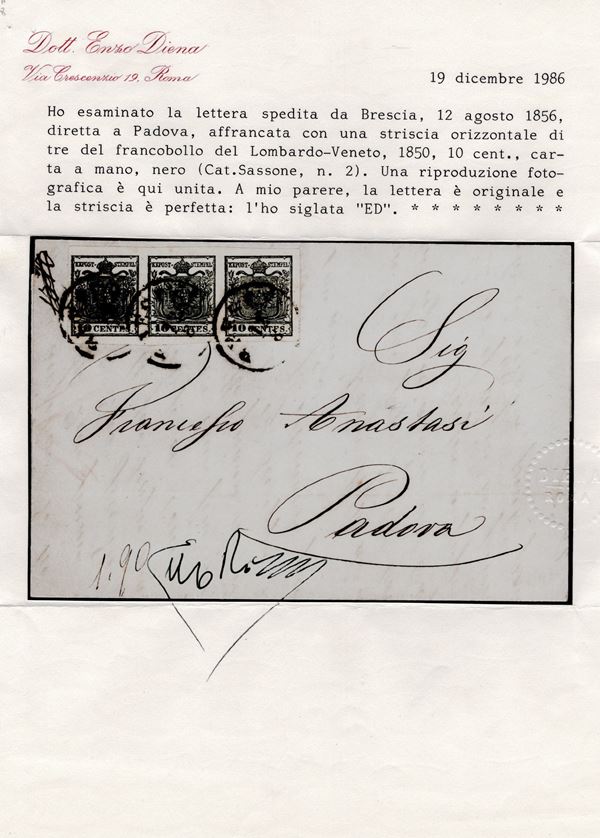 Dott. Enzo Diena
Via Crescenzio 19, Roma
19 dicembre 1986
Ho esaminato la lettera spedita da Brescia, 12 agosto 1856,
diretta a Padova, affrancata con una striscia orizzontale di
tre del francobollo del Lombardo-Veneto, 1850, 10 cent., car-
ta a mano, nero (Cat.Sassone, n. 2). Una riproduzione foto-
grafica è qui unita. A mio parere, la lettera è originale e
la striscia è perfetta: l'ho siglata "ED". * * * * * * * *
K.K.POST-STEMPEL K.K.POST-STEMPEL K.K.POST-STEMPEL
10 CENTES. 10 CENTES. 10 CENTES.
Sig
Francesco Anastasi
Padova
DIENA
ROMA
1.90